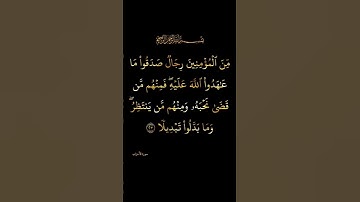 بسم الله الرحمن الرحيم
مِّنَ ٱلْمُؤْمِنِينَ رِجَالٌ صَدَقُوا۟ مَا
عَـٰهَدُوا۟ ٱللَّهَ عَلَيْهِ ۖ فَمِنْهُم مَّن
قَضَىٰ نَحْبَهُۥ وَمِنْهُم مَّن يَنتَظِرُ ۖ
وَمَا بَدَّلُوا۟ تَبْدِيلًا ٢٣
سورة الأحزاب